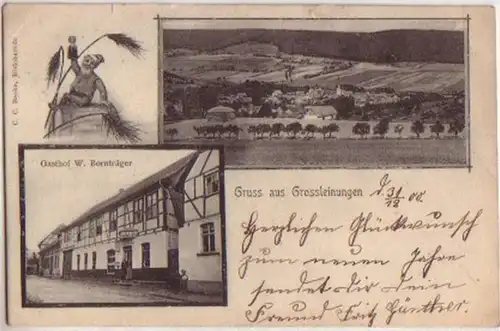 C. C. Becker, Blankenrode
Gasthof W. Bornträger
Gruss aus Grossleinungen
d. 31/12 00.
Herzlichen Glückwunsch
zum neuen Jahre
sendet Dir Dein
Freund Fritz Günther.